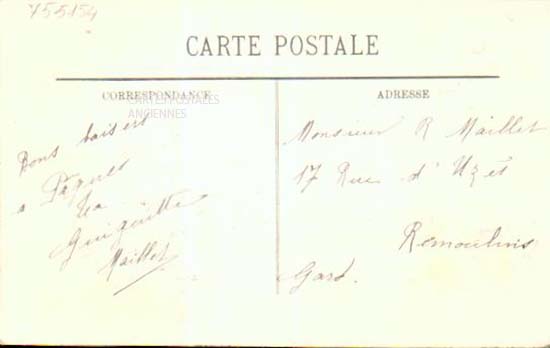 755154
CARTE POSTALE
CORRESPONDANCE
CARTES POSTALES
ANCIENNES
Bons baisers
Ta
Maillet
ADRESSE
Monsieur R Maillet
17 Rue d'Uzès
Remoulins
Gard.